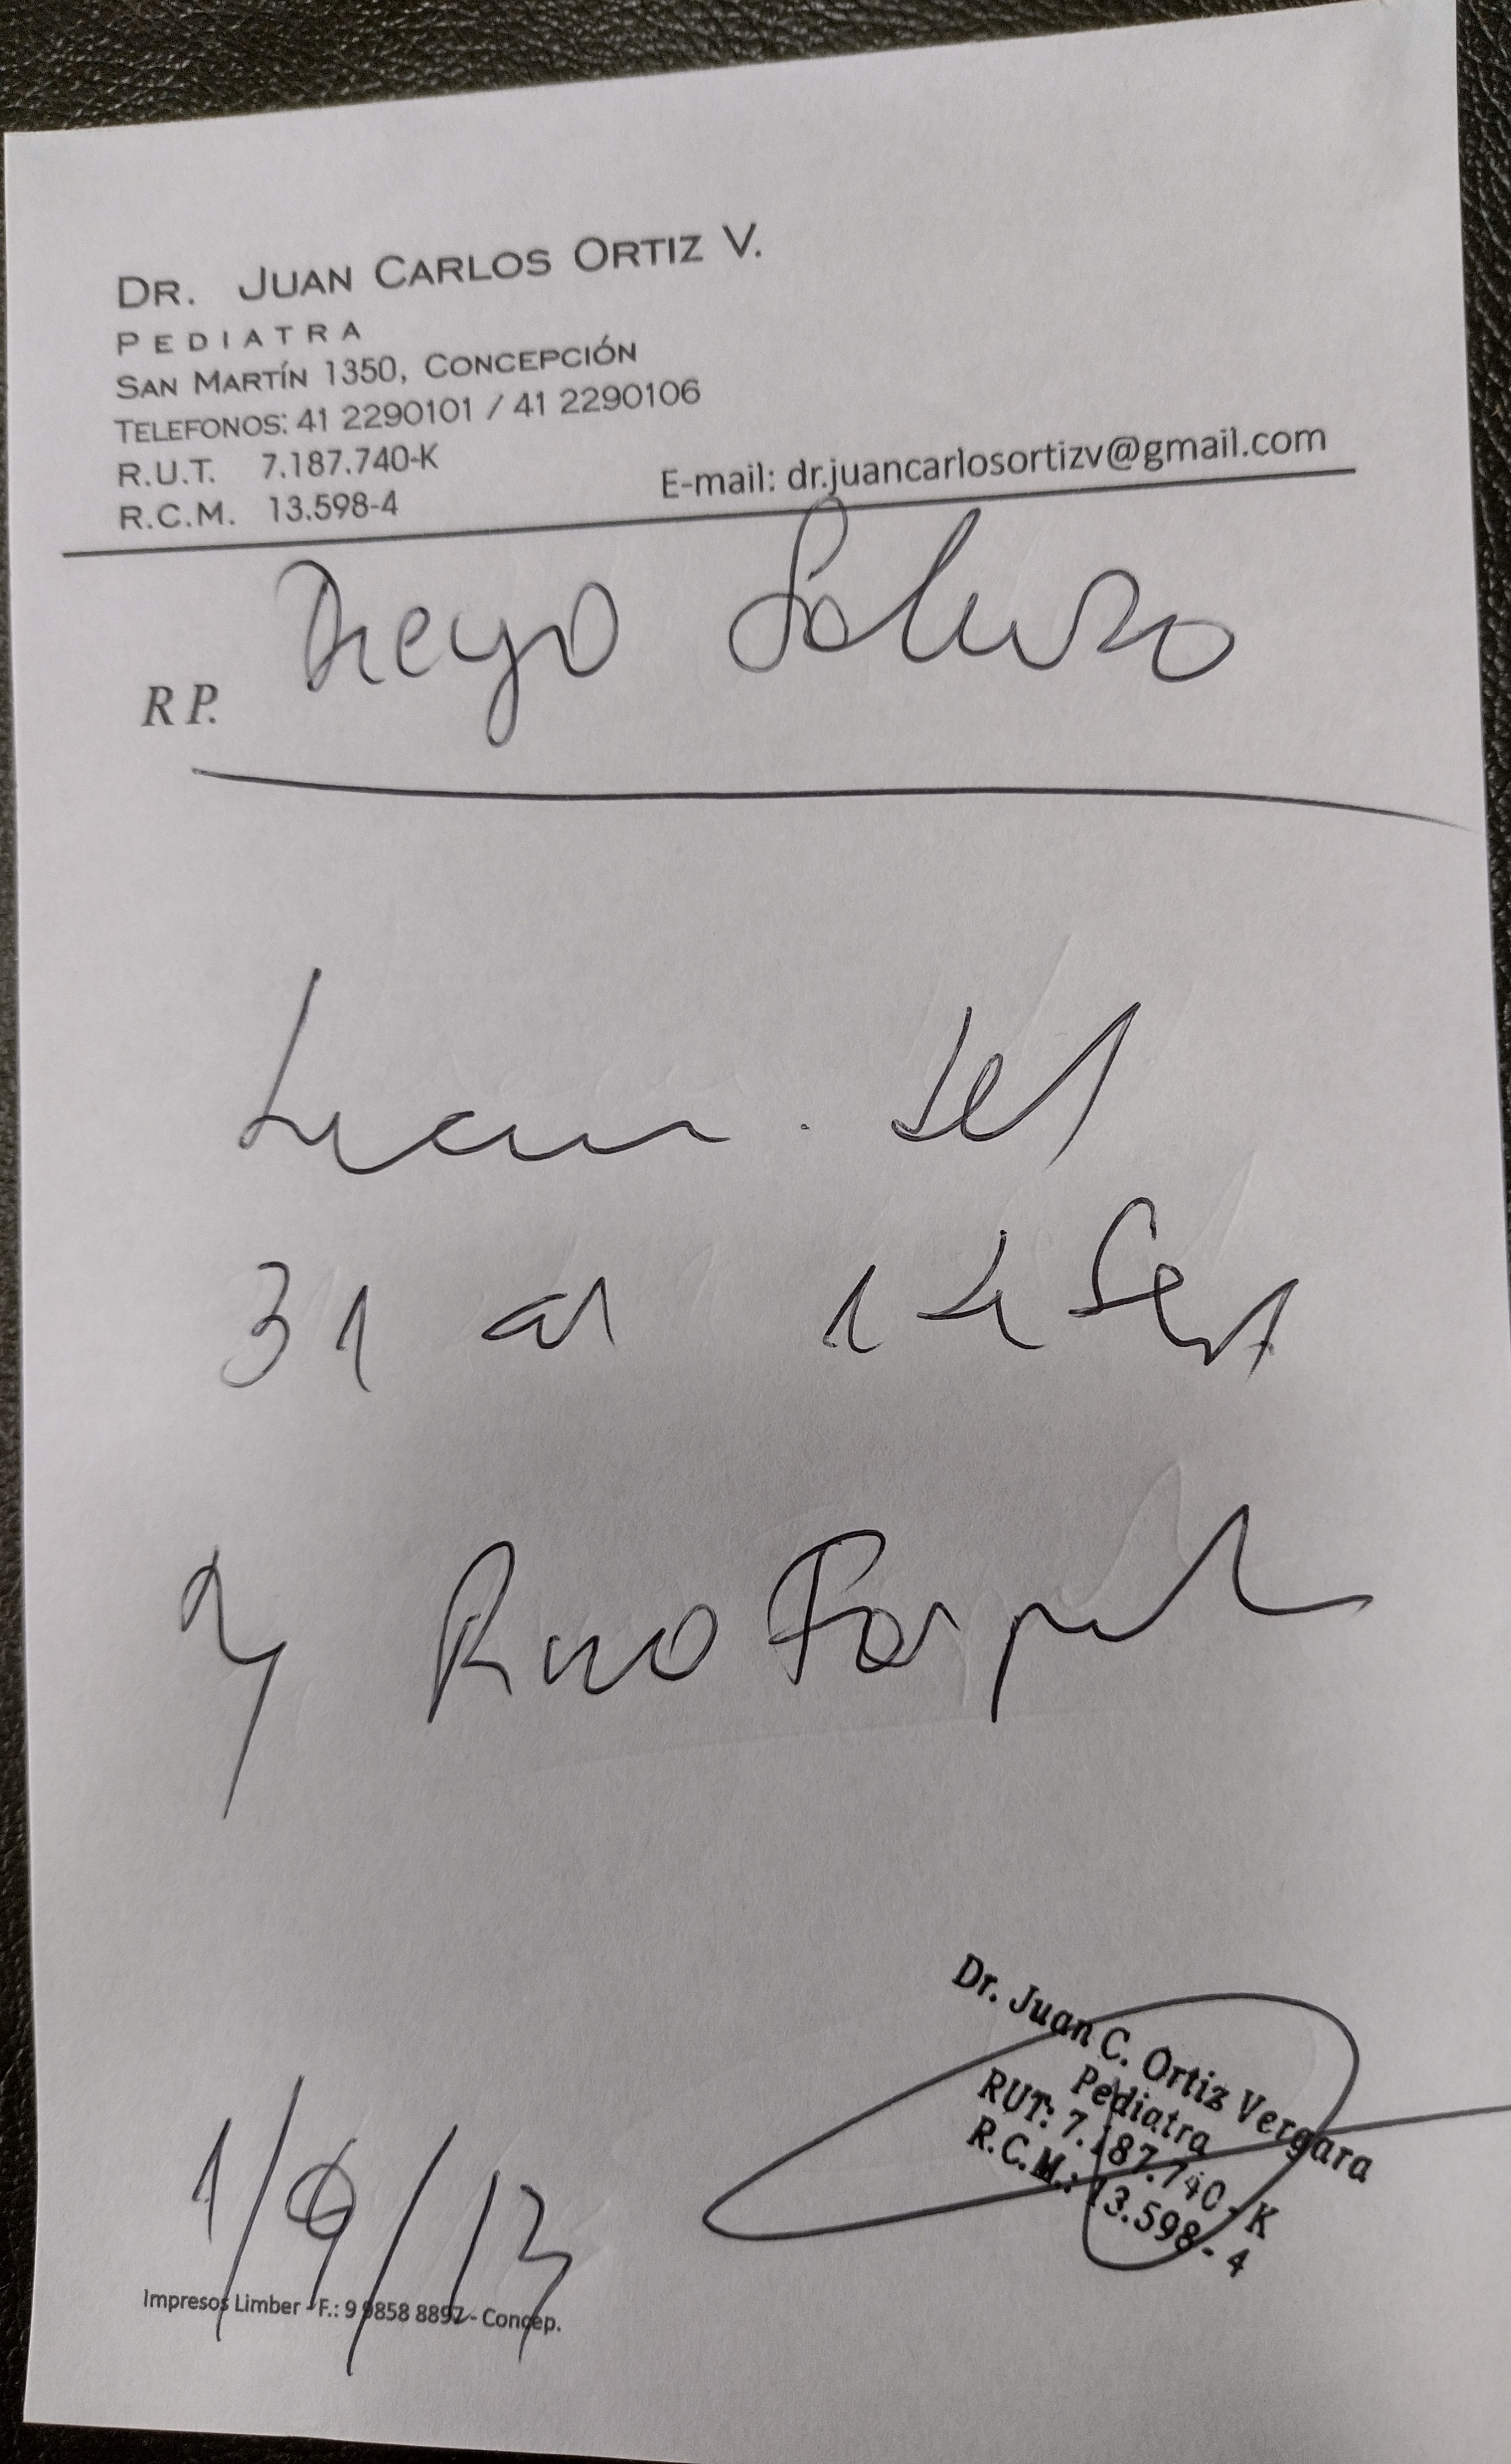 DR. JUAN CARLOS ORTIZ V.
PEDIATRA
SAN MARTÍN 1350, CONCEPCIÓN
TELEFONOS: 41 2290101 / 41 2290106
R.U.T. 7.187.740-K
R.C.M. 13.598-4
E-mail: dr.juancarlosortizv@gmail.com
Diego
RP.
del
31 al 1 de Sept
Dr. Juan C. Ortiz Vergara
Pediatra
RUT: 7.187.740-K
R.C.M.: 13.598-4
Impresos Limber - F.: 9 9858 8897 - Concep.